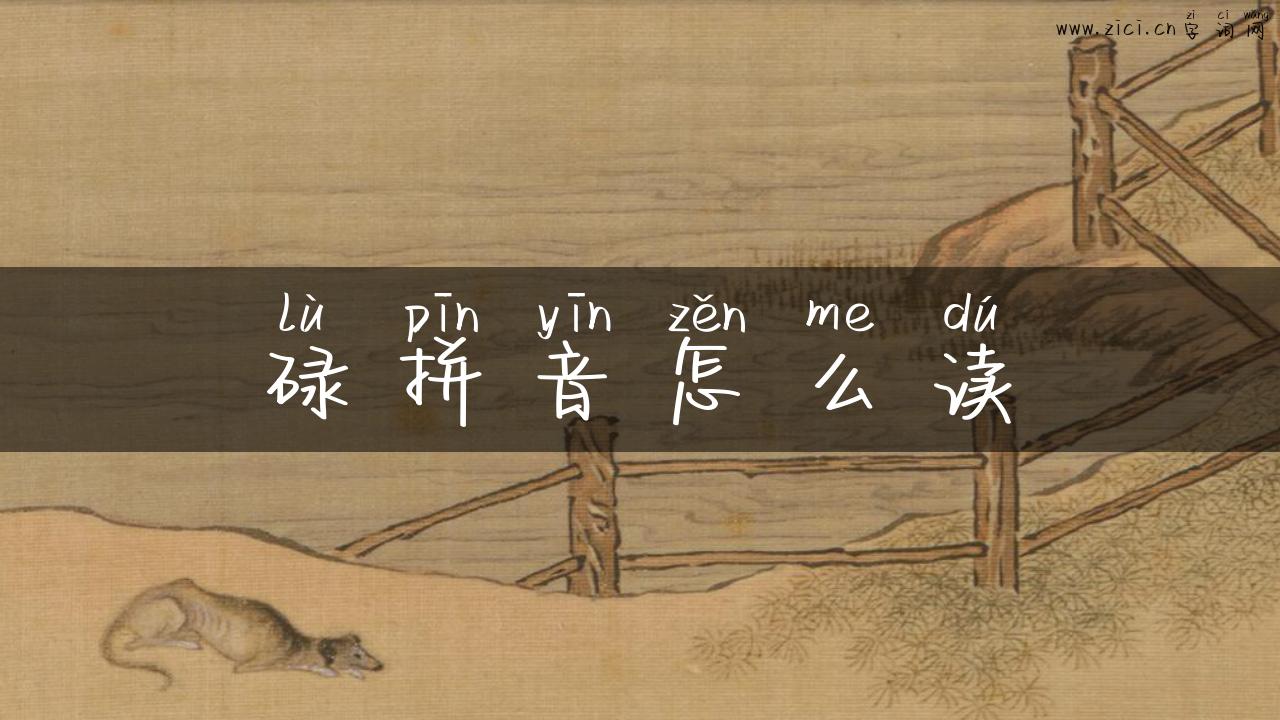 zi ci wang
www.zici.cn 字词网
lù pīn yīn zěn me dú
碌拼音怎么读